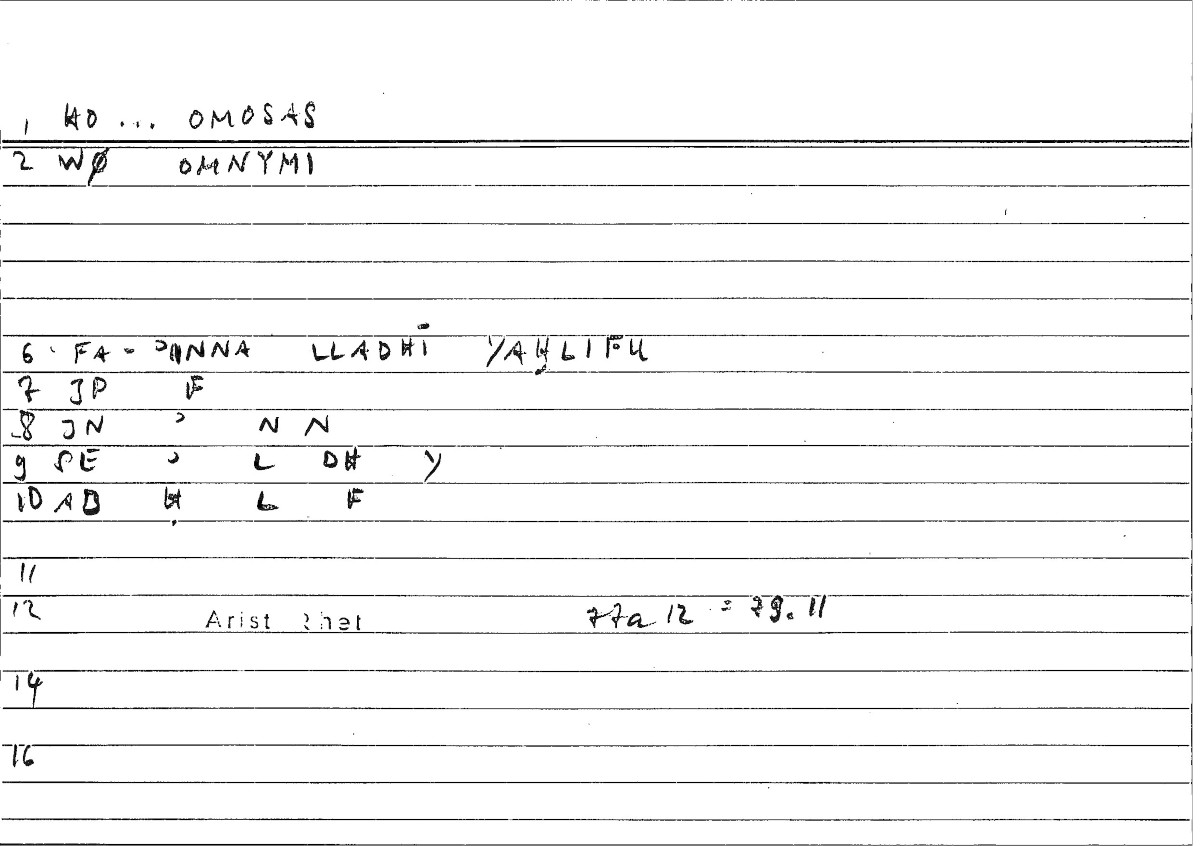 1 HO ... OMOSAS
2 WØ OMNYMI
6 FA - ʾINNA LLADHĪ YAḤLIFU
7 JP F
8 JN ʾ N N
9 SE ʾ L DH Y
10 AB Ḥ L F
11
12 Arist Rhet 77a 12 = 79.11
14
16